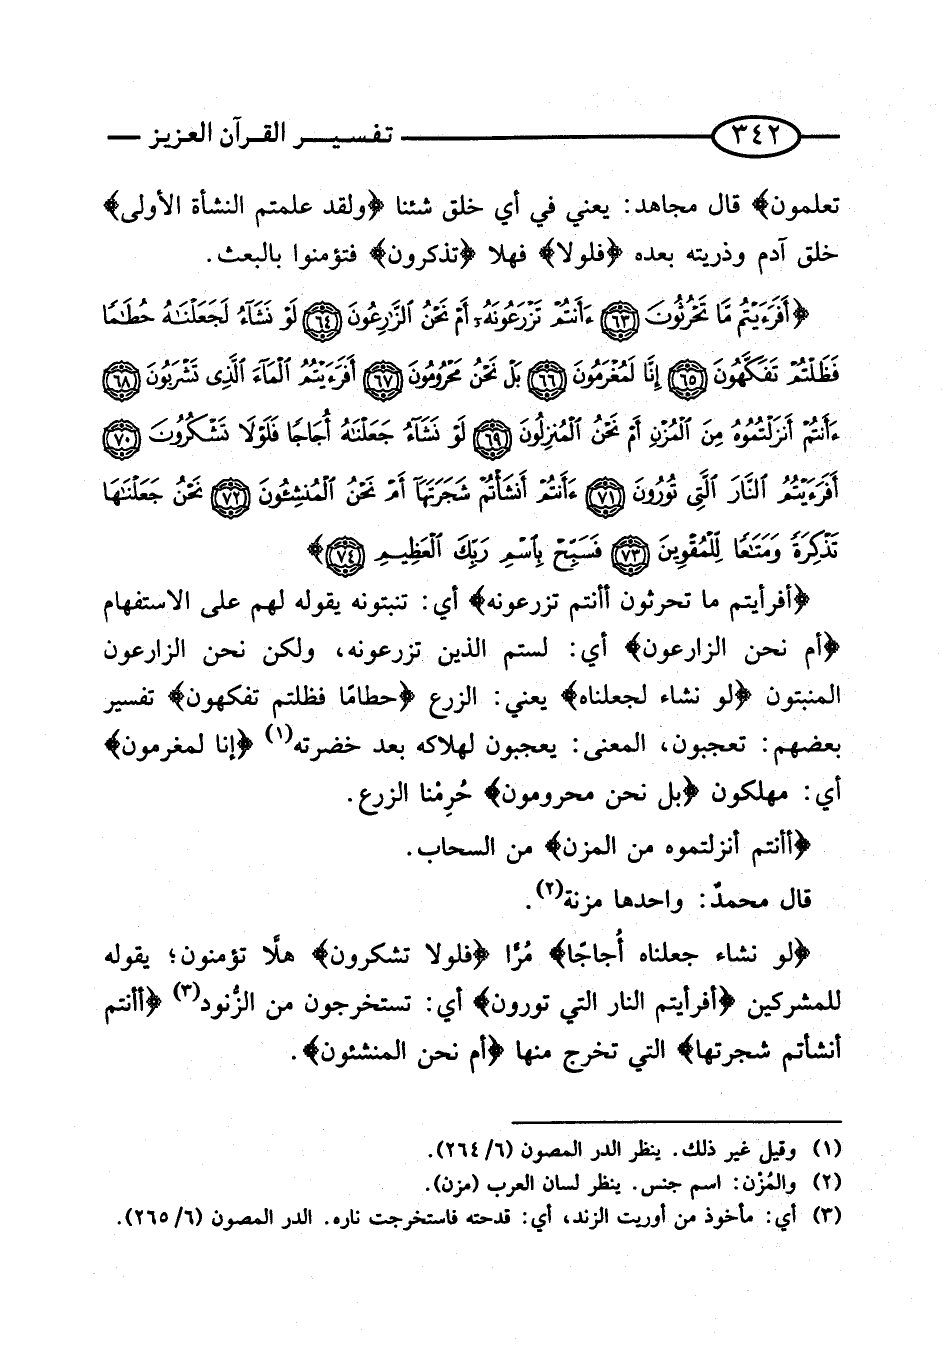 ٣٤٢ تفسير القرآن العزيز
تعلمون﴾ قال مجاهد: يعني في أي خلق شئنا ﴿ولقد علمتم النشأة الأولى﴾
خلق آدم وذريته بعده ﴿فلولا﴾ فهلا ﴿تذكرون﴾ فتؤمنوا بالبعث.
﴿أَفَرَءَيْتُم مَّا تَحْرُثُونَ ٦٣ ءَأَنتُمْ تَزْرَعُونَهُۥٓ أَمْ نَحْنُ ٱلزَّٰرِعُونَ ٦٤ لَوْ نَشَآءُ لَجَعَلْنَٰهُ حُطَٰمًا
فَظَلْتُمْ تَفَكَّهُونَ ٦٥ إِنَّا لَمُغْرَمُونَ ٦٦ بَلْ نَحْنُ مَحْرُومُونَ ٦٧ أَفَرَءَيْتُمُ ٱلْمَآءَ ٱلَّذِى تَشْرَبُونَ ٦٨
ءَأَنتُمْ أَنزَلْتُمُوهُ مِنَ ٱلْمُزْنِ أَمْ نَحْنُ ٱلْمُنزِلُونَ ٦٩ لَوْ نَشَآءُ جَعَلْنَٰهُ أُجَاجًا فَلَوْلَا تَشْكُرُونَ ٧٠
أَفَرَءَيْتُمُ ٱلنَّارَ ٱلَّتِى تُورُونَ ٧١ ءَأَنتُمْ أَنشَأْتُمْ شَجَرَتَهَآ أَمْ نَحْنُ ٱلْمُنشِـُٔونَ ٧٢ نَحْنُ جَعَلْنَٰهَا
تَذْكِرَةً وَمَتَٰعًا لِّلْمُقْوِينَ ٧٣ فَسَبِّحْ بِٱسْمِ رَبِّكَ ٱلْعَظِيمِ ٧٤﴾
﴿أفرأيتم ما تحرثون أأنتم تزرعونه﴾ أي: تنبتونه يقوله لهم على الاستفهام
﴿أم نحن الزارعون﴾ أي: لستم الذين تزرعونه، ولكن نحن الزارعون
المنبتون ﴿لو نشاء لجعلناه﴾ يعني: الزرع ﴿حطامًا فظلتم تفكهون﴾ تفسير
بعضهم: تعجبون، المعنى: يعجبون لهلاكه بعد خضرته(١) ﴿إنا لمغرمون﴾
أي: مهلكون ﴿بل نحن محرومون﴾ حُرِمْنا الزرع.
﴿أأنتم أنزلتموه من المزن﴾ من السحاب.
قال محمدٌ: واحدها مزنة(٢).
﴿لو نشاء جعلناه أُجاجًا﴾ مُرًّا ﴿فلولا تشكرون﴾ هلَّا تؤمنون؛ يقوله
للمشركين ﴿أفرأيتم النار التي تورون﴾ أي: تستخرجون من الزُّنود(٣) ﴿أأنتم
أنشأتم شجرتها﴾ التي تخرج منها ﴿أم نحن المنشئون﴾.
(١) وقيل غير ذلك. ينظر الدر المصون (٦/ ٢٦٤).
(٢) والمُزْن: اسم جنس. ينظر لسان العرب (مزن).
(٣) أي: مأخوذ من أوريت الزند، أي: قدحته فاستخرجت ناره. الدر المصون (٦/ ٢٦٥).